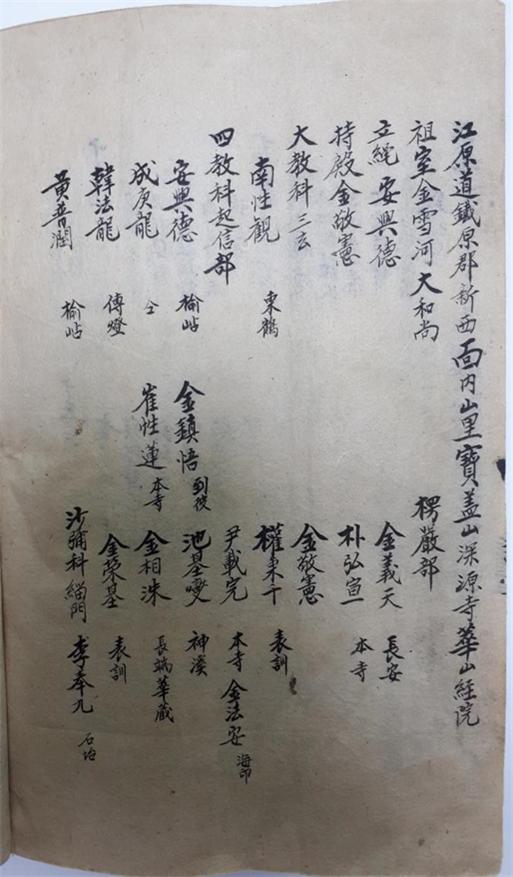 江原道鐵原郡新西面内山里寶盖山深源寺華山経院
祖室金雪河大和尚
立繩 安興德
持殿金敬憲
大教科三玄
南性觀 東鶴
四教科起信部
安興德 楡岾
成庚龍 仝
韓法龍 傳燈
黃普潤 楡岾
金鎮悟 到彼
崔性蓮 本寺
楞嚴部
金義天 長安
朴弘宣 本寺
金敬憲
權東十 表訓
尹載完 本寺
金法安 海印
池基燮 神溪
金相洙 長端華蔵
金榮基 表訓
沙彌科緇門
李奉九 石泊